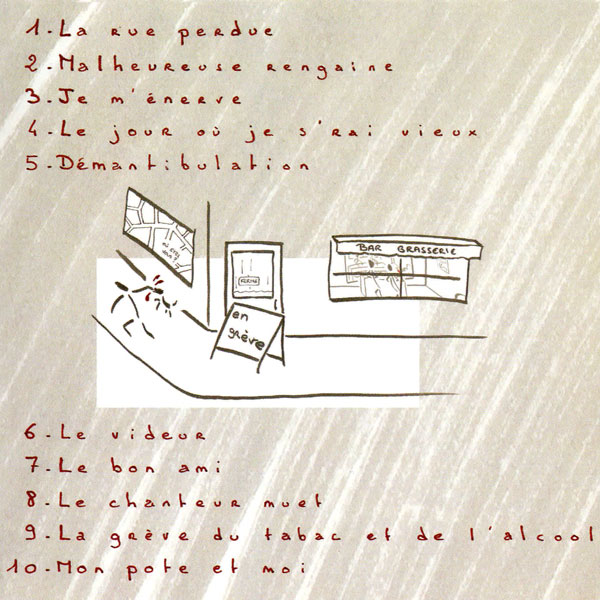 1-La rue perdue
2-Malheureuse rengaine
3-Je m'énerve
4-Le jour où je s'rai vieux
5-Démantibulation
BAR BRASSERIE
FERMÉ
en
grève
6-Le videur
7-Le bon ami
8-Le chanteur muet
9-La grève du tabac et de l'alcool
10-Mon pote et moi